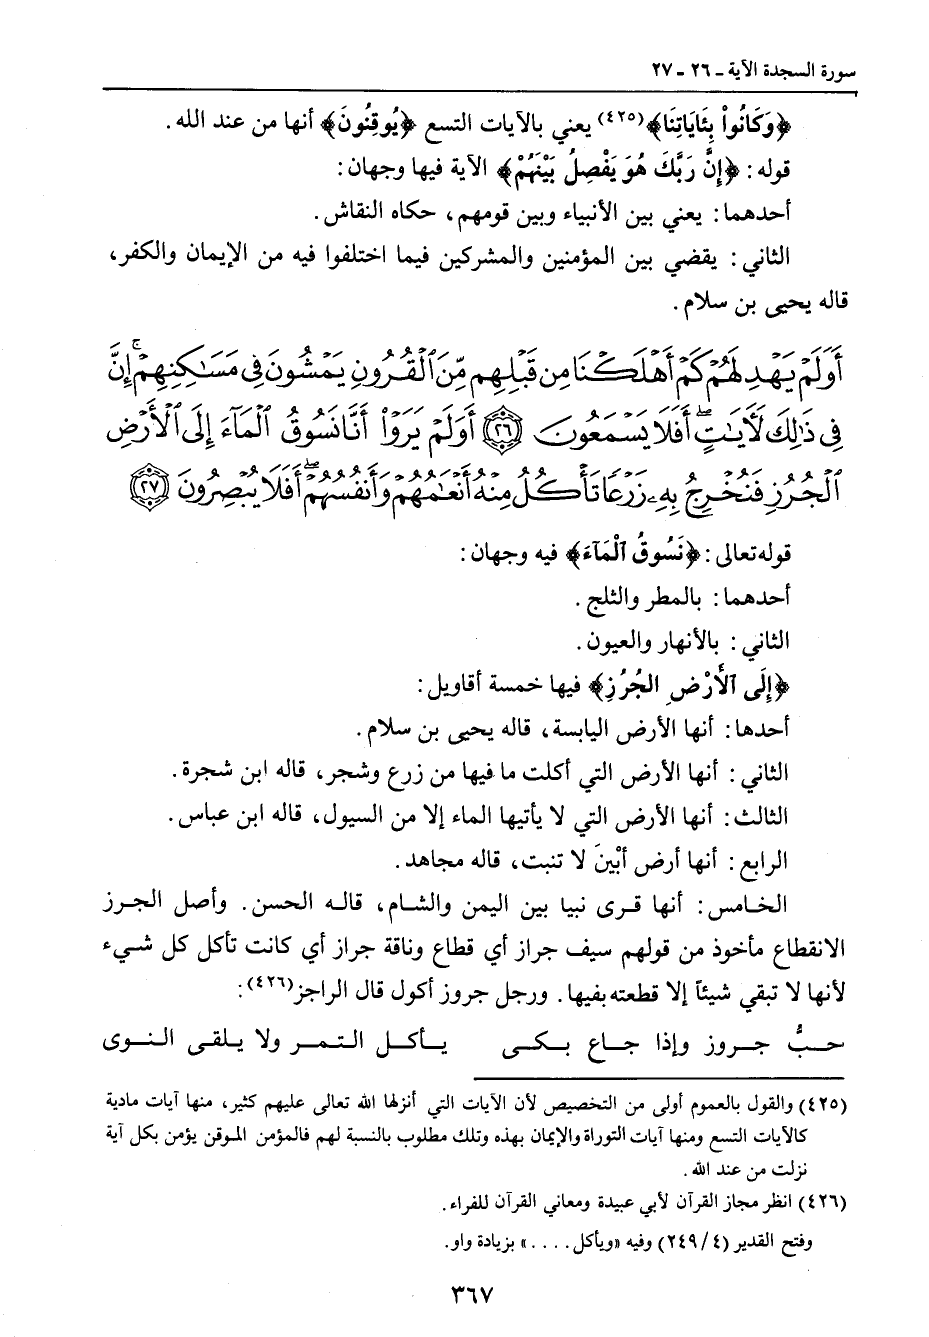 سورة السجدة الآية ـ ٢٦ ـ ٢٧
﴿وَكَانُواْ بِئَايَاتِنَا﴾(٤٢٥) يعني بالآيات التسع ﴿يُوقِنُونَ﴾ أنها من عند الله.
قوله: ﴿إِنَّ رَبَّكَ هُوَ يَفْصِلُ بَيْنَهُمْ﴾ الآية فيها وجهان:
أحدهما: يعني بين الأنبياء وبين قومهم، حكاه النقاش.
الثاني: يقضي بين المؤمنين والمشركين فيما اختلفوا فيه من الإيمان والكفر،
قاله يحيى بن سلام.
أَوَلَمْ يَهْدِ لَهُمْ كَمْ أَهْلَكْنَا مِن قَبْلِهِم مِّنَ ٱلْقُرُونِ يَمْشُونَ فِى مَسَٰكِنِهِمْ ۚ إِنَّ
فِى ذَٰلِكَ لَأَيَٰتٍ ۖ أَفَلَا يَسْمَعُونَ ٢٦ أَوَلَمْ يَرَوْاْ أَنَّا نَسُوقُ ٱلْمَآءَ إِلَى ٱلْأَرْضِ
ٱلْجُرُزِ فَنُخْرِجُ بِهِۦ زَرْعًا تَأْكُلُ مِنْهُ أَنْعَٰمُهُمْ وَأَنفُسُهُمْ ۖ أَفَلَا يُبْصِرُونَ ٢٧
قوله تعالى: ﴿نَسُوقُ ٱلْمَآءَ﴾ فيه وجهان:
أحدهما: بالمطر والثلج.
الثاني: بالأنهار والعيون.
﴿إِلَى ٱلأَرْضِ الجُرُزِ﴾ فيها خمسة أقاويل:
أحدها: أنها الأرض اليابسة، قاله يحيى بن سلام.
الثاني: أنها الأرض التي أكلت ما فيها من زرع وشجر، قاله ابن شجرة.
الثالث: أنها الأرض التي لا يأتيها الماء إلا من السيول، قاله ابن عباس.
الرابع: أنها أرض أبْينَ لا تنبت، قاله مجاهد.
الخامس: أنها قرى نبيا بين اليمن والشام، قاله الحسن. وأصل الجرز
الانقطاع مأخوذ من قولهم سيف جراز أي قطاع وناقة جراز أي كانت تأكل كل شيء
لأنها لا تبقي شيئاً إلا قطعته بفيها. ورجل جروز أكول قال الراجز(٤٢٦):
حبُّ جروز وإذا جاع بكى يأكل التمر ولا يلقى النوى
(٤٢٥) والقول بالعموم أولى من التخصيص لأن الآيات التي أنزلها الله تعالى عليهم كثير، منها آيات مادية
كالآيات التسع ومنها آيات التوراة والإيمان بهذه وتلك مطلوب بالنسبة لهم فالمؤمن الموقن يؤمن بكل آية
نزلت من عند الله.
(٤٢٦) انظر مجاز القرآن لأبي عبيدة ومعاني القرآن للفراء.
وفتح القدير (٤/ ٢٤٩) وفيه «ويأكل....» بزيادة واو.
٣٦٧